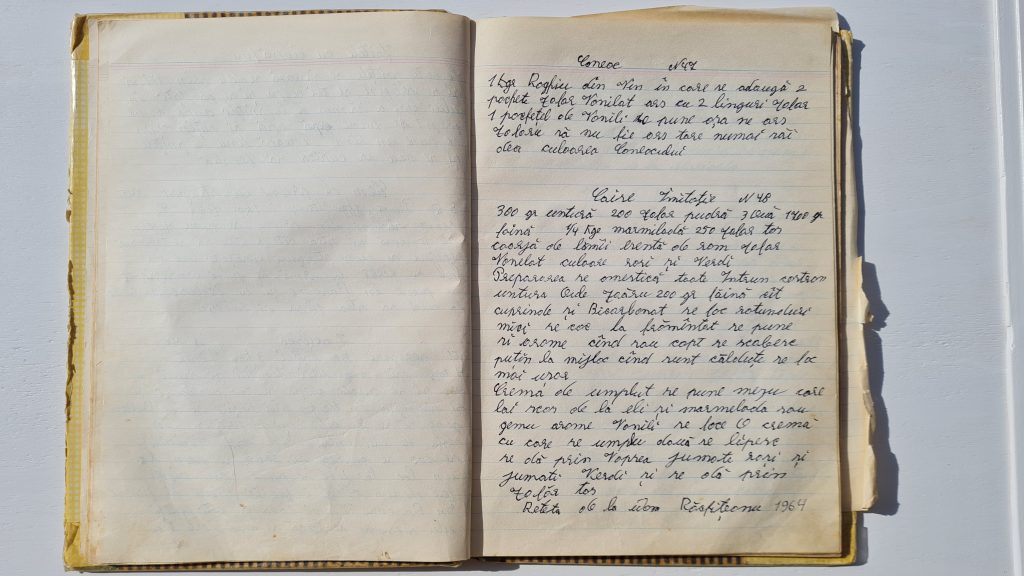 Coneac N 47
1 kgr Roghiu din Vin în care se adaugă 2
pachete zafar Vanilat ars cu 2 linguri zafar
1 pachețel de Vanili se pune așa ne ars
zafaru să nu fie ars tare numai săi
dea culoarea Coneacului
Caise Imitație N 48
300 gr untură 200 zafar pudră 3 Ouă
făină 1/4 kgr marmiladă 250 zafar tos
coarjă de lămîi esență de rom zafar
Vanelat culoare roși și Verdi
Prepararea se amestică toate Intrun castron
untura Oule zaăru 200 gr făină cît
cuprinde și Bicarbonat se fac rotunduri
mici se coc la frămîntat se pune
și arome cînd sau copt se scabesc
puțin la mijloc cînd sunt călduțe se fac
mai ușor
Cremă de umplut se pune mezu care
lai scos de la eli și marmelada sau
gemu arome Vanili se face O cremă
cu care se umplu două se lipesc
se dă prin Vopsea jumati roși și
jumati Verdi și se dă prin
zafăr tos
Reteta de la Răsfițeanu 1964